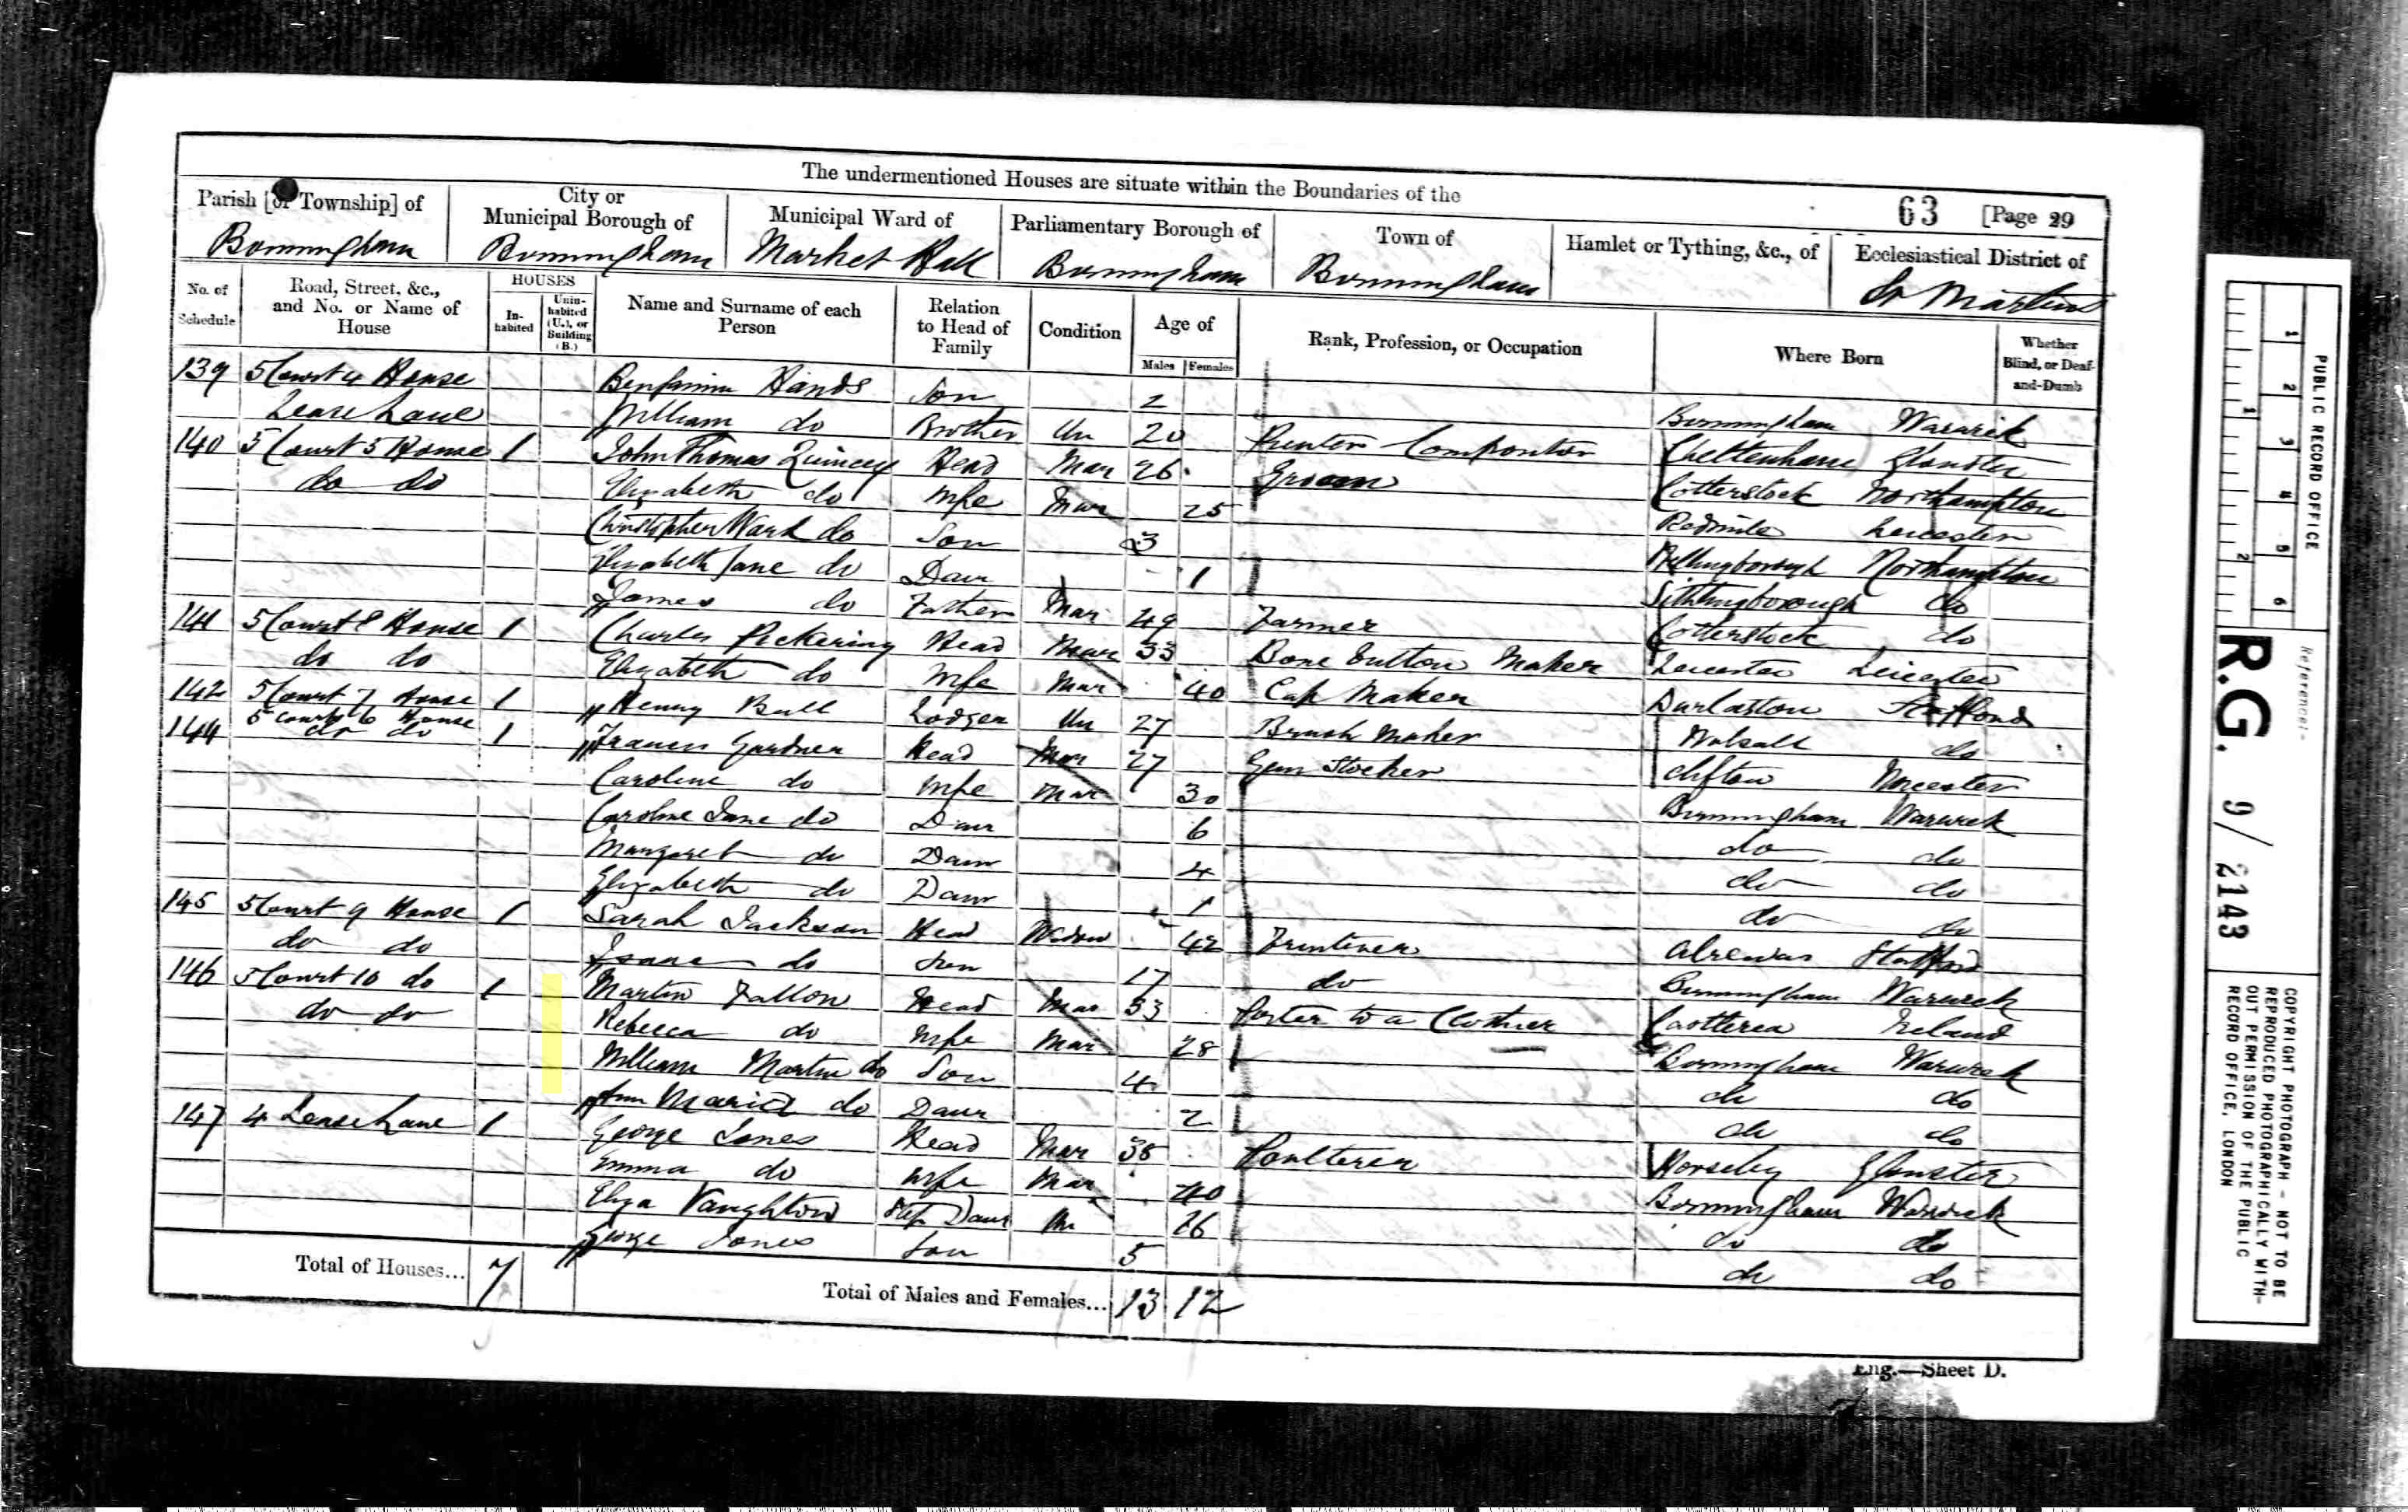 The undermentioned Houses are situate within the Boundaries of the
63 [Page 29
Parish [or Township] of
City or Municipal Borough of
Municipal Ward of
Parliamentary Borough of
Town of
Hamlet or Tything, &c., of
Ecclesiastical District of
Birmingham Birmingham Market Hall Birmingham Birmingham St Martins
No. of Schedule
Road, Street, &c., and No. or Name of House
HOUSES
In-habited
Unin-habited (U.), or Building (B.)
Name and Surname of each Person
Relation to Head of Family
Condition
Age of
Males Females
Rank, Profession, or Occupation
Where Born
Whether Blind, or Deaf-and-Dumb
139 5 Court 4 House Benjamin Hands Son 2 Birmingham Warwick
Lease Lane William do Brother Un 20 Printer Compositor Cheltenham Gloster
140 5 Court 5 House 1 John Thomas Quincey Head Mar 26 Groom Cotterstock Northampton
do do Elizabeth do Wife Mar 25 Redmile Leicester
Christopher Ward do Son 3 Northampton
Elizabeth Jane do Daur 1 do
James do Father Mar 49 Farmer Cotterstock do
141 5 Court 8 House 1 Charles Pickering Head Mar 33 Bone Button Maker Leicester Leicester
do do Elizabeth do Wife Mar 40 Cap Maker Darlaston Stafford
142 5 Court 7 House 1 Henry Bull Lodger Un 27 Brush Maker Walsall do
144 5 Court 6 House do do 1 Francis Gardner Head Mar 27 Gun Stocker Clifton Worcester
Caroline do Wife Mar 30 Birmingham Warwick
Caroline Jane do Daur 6 do do
Margaret do Daur 4 do do
Elizabeth do Daur 1 do do
145 5 Court 9 House 1 Sarah Jackson Head Widow 42 Fruiterer Alrewas Stafford
do do Isaac do Son 17 do Birmingham Warwick
146 5 Court 10 do 1 Martin Fallon Head Mar 33 Porter to a Clothier Castlerea Ireland
do do Rebecca do Wife Mar 28 Birmingham Warwick
William Martin do Son 4 do do
Ann Maria do Daur 2 do do
147 4 Lease Lane 1 George Jones Head Mar 38 Poulterer Gloster
Emma do Wife Mar 40 Birmingham Warwick
Eliza Vaughton Step Daur Un 26 do do
George Jones Son 5 do do
Total of Houses... 7 Total of Males and Females... 13 12
Eng.—Sheet D.
PUBLIC RECORD OFFICE
1 2 3 4 5 6
1 2
Reference:-
R.G. 9/2143
COPYRIGHT PHOTOGRAPH – NOT TO BE
REPRODUCED PHOTOGRAPHICALLY WITH-
OUT PERMISSION OF THE PUBLIC
RECORD OFFICE, LONDON